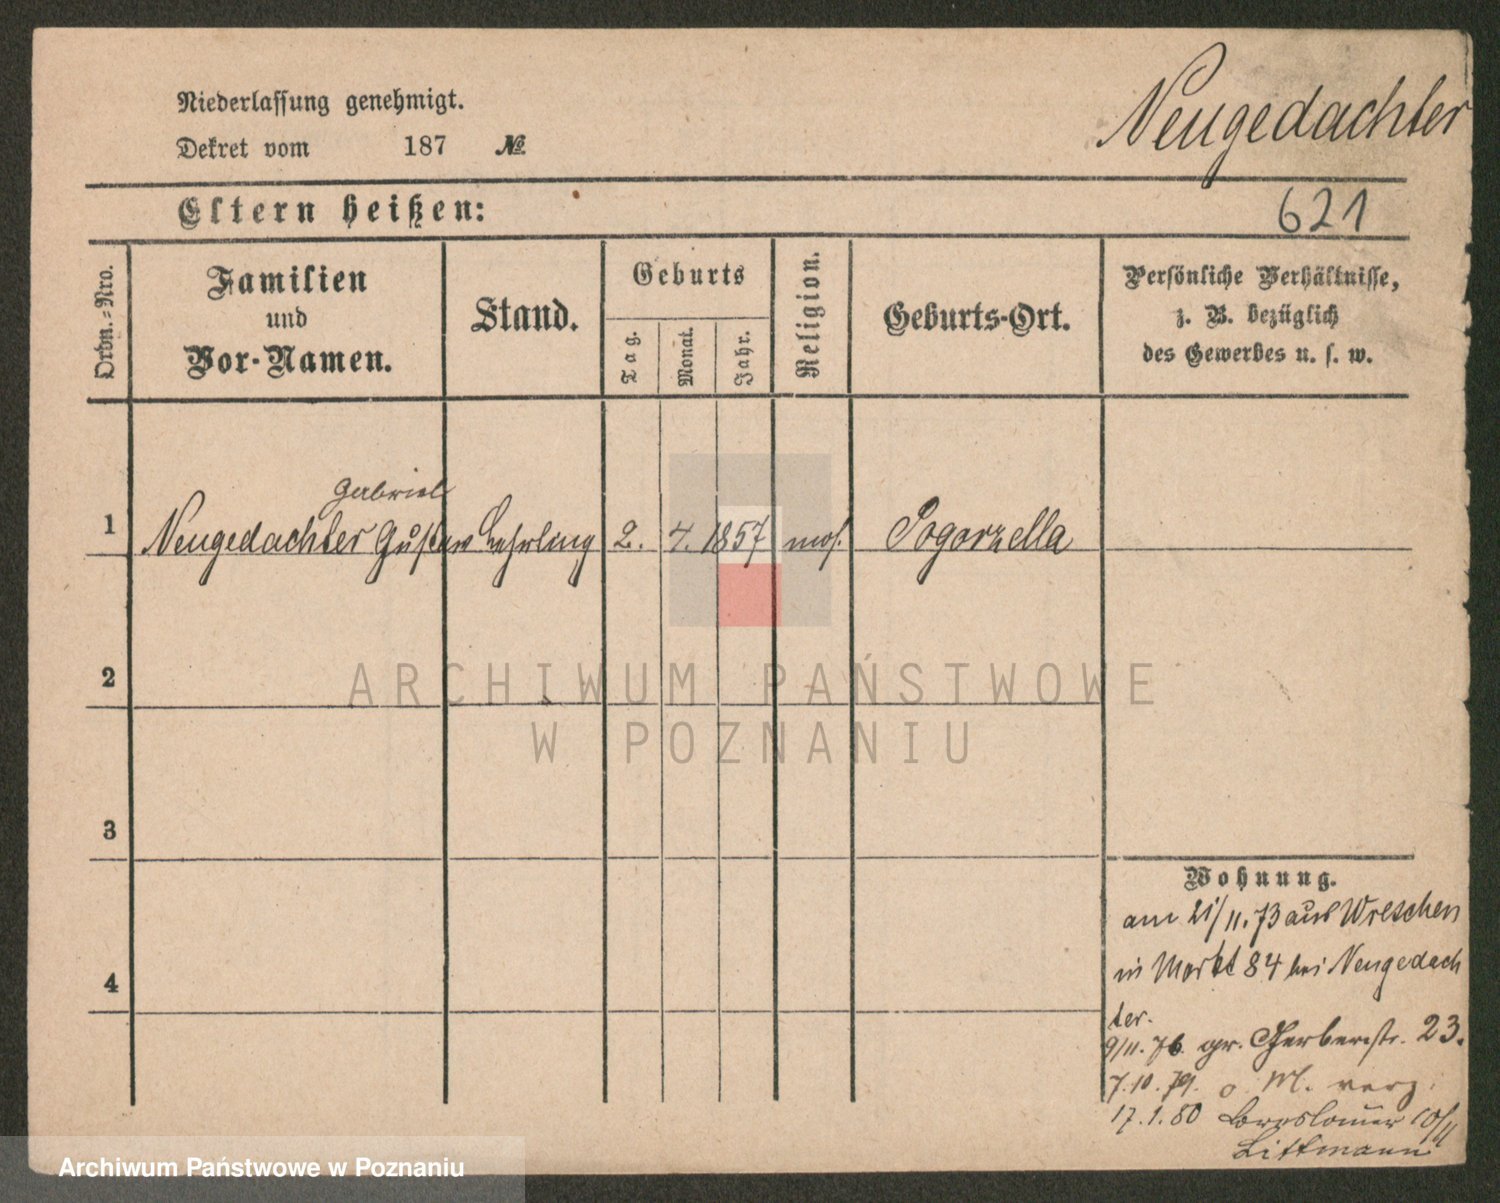 Niederlassung genehmigt.
Dekret vom 187 №
Neugedachter
Eltern heißen:
621
Ordn.-Nro.
Familien
und
Vor-Namen.
Stand.
Geburts
Tag.
Monat.
Jahr.
Religion.
Geburts-Ort.
Persönliche Verhältnisse,
z. B. bezüglich
des Gewerbes u. s. w.
Gabriel
1 Neugedachter Gustav Lehrling 2. 4. 1857 mos. Pogorzella
2
3
4
Wohnung.
am 21/11.73 aus Wreschen
in Markt 84 bei Neugedach
ter.
9/11.76. gr. Gerberstr. 23.
7.10.79. o. M. verz.
17.1.80 Breslauer 10/11
Littmann
ARCHIWUM PAŃSTWOWE
W POZNANIU
Archiwum Państwowe w Poznaniu